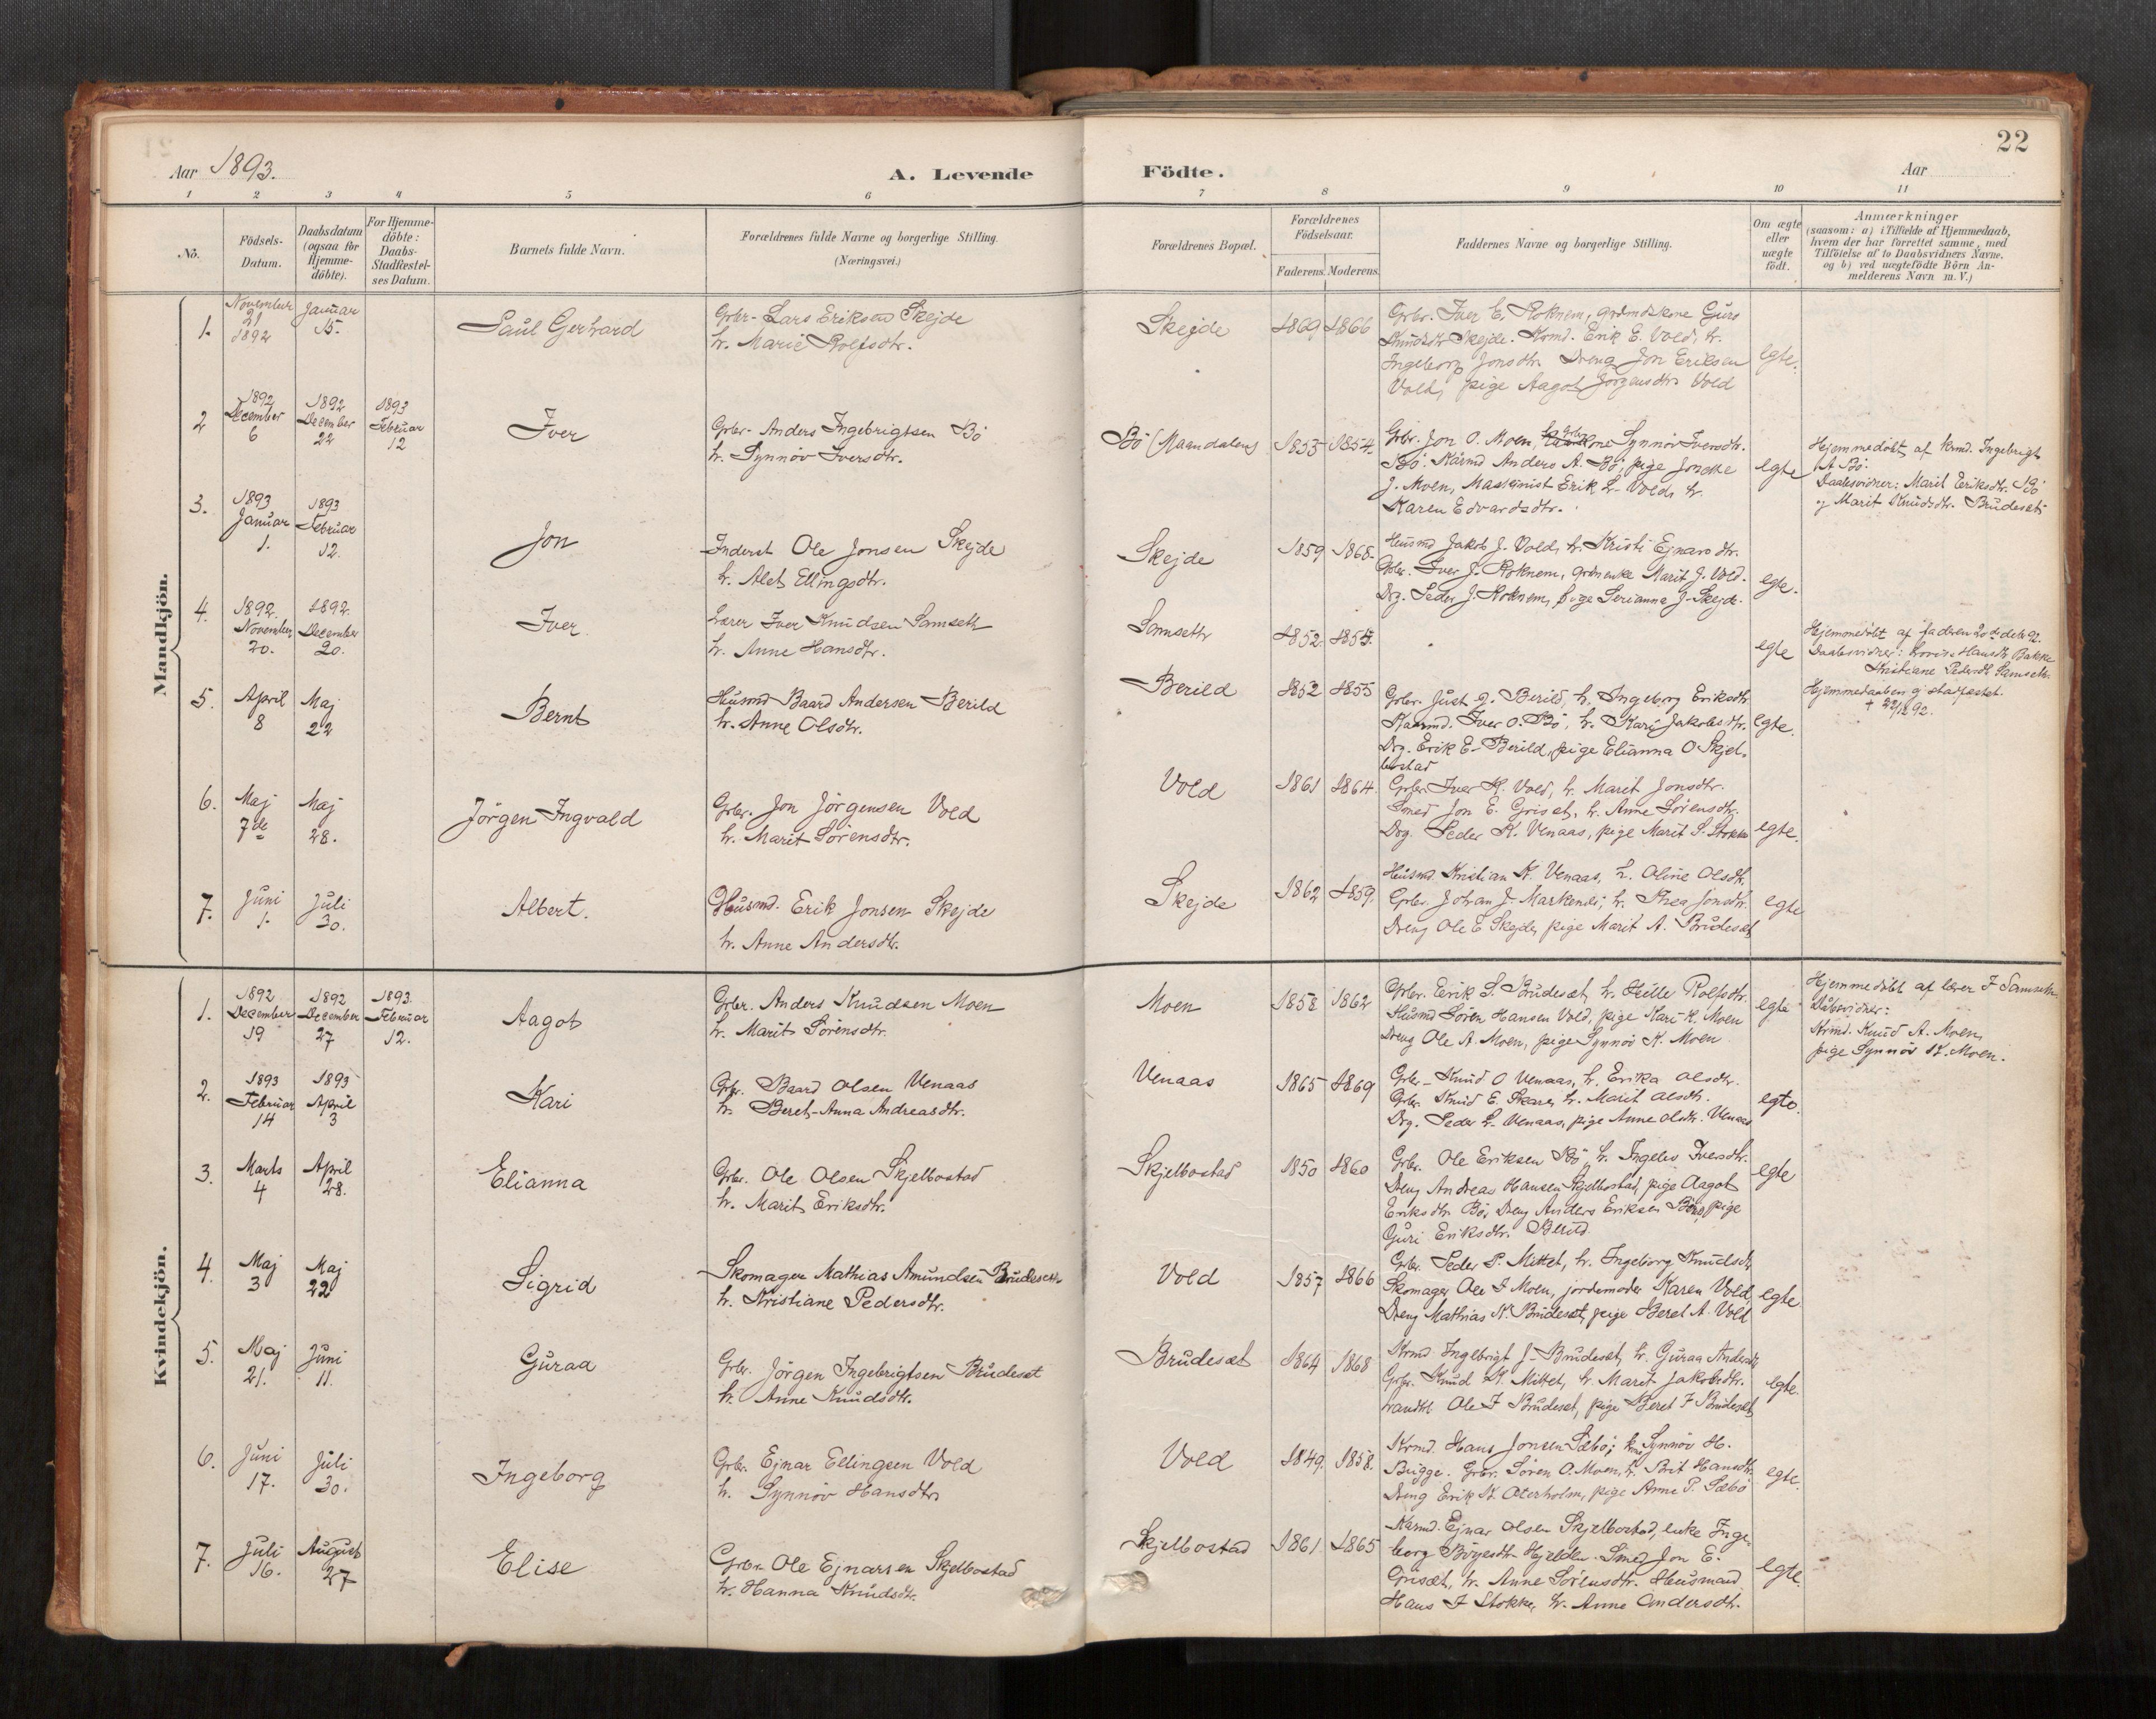 Aar 1893.
A. Levende
Födte.
Aar
22
1 2 3 4 5 6 7 8 9 10 11
No.
Födsels-Datum.
Daabsdatum (ogsaa for Hjemme-döbte).
For Hjemme-döbte: Daabs-Stadfæstel-ses Datum.
Barnets fulde Navn.
Forældrenes fulde Navne og borgerlige Stilling.
(Næringsvei.)
Forældrenes Bopæl.
Forældrenes Födselsaar.
Faderens. Moderens.
Faddernes Navne og borgerlige Stilling.
Om ægte eller uægte födt.
Anmærkninger
(saasom: a) i Tilfælde af Hjemmedaab, hvem der har forrettet samme, med Tilföielse af to Daabsvidners Navne. og b) ved uægtefödte Börn An-melderens Navn m.V.)
Mandkjön.
1. November 21 1892
Januar 15.
Paul Gerhard
Grbr. Lars Eriksen Skejde
h. Marie Rolfsdtr.
Skejde 1869 1866
Grbr. Iver E. Roknem, grdmdskone Guro
Knudsdtr Skejde. Krmd. Erik E. Vold, h.
Ingeborg Jonsdtr. Dreng Jon Eriksen
Vold, pige Aagot Jörgensdtr Vold
egte.
2 1892 December 6
1892 December 22
1893 Februar 12
Iver
Grbr. Anders Ingebrigtsen Bö
h. Synnöv Iversdtr.
Bö (Maandalen) 1853 1854.
Grbr. Jon O. Moen, kone Synnöv Iversdtr.
Bö. Kårmd Anders A. Bö, pige
J. Moen, Maskinist Erik L. Vold, h.
Karen Edvardsdtr.
egte
Hjemmedöbt af krmd. Ingebrigt
A Bö.
Daabsvidner: Marit Eriksdtr. Bö
og Marit Knudsdtr. Brudesæt
3. 1893 Januar 1.
1893 Februar 12.
Jon
Inderst Ole Jonsen Skejde
h. Alet Ellingsdtr.
Skejde 1859 1868.
Husmd Jakob J. Vold, h. Kristi Ejnarsdtr.
Grbr. Iver J. Roknem, grdmenke Marit J. Vold.
Drg. Peder J. Roknem, pige Serianna J. Skejde.
egte.
4. 1892. November 20.
1892. December 20.
Iver
Lærer Iver Knudsen Samseth
h. Anne Hansdtr.
Samseth 1852. 1855.
egte
Hjemmedöbt af faderen 20de debr 92.
Daabsvidner: Lovise Hansdtr. Bakke
Kristiane Pedersdtr Samseth.
Hjemmedaaben ej stadfæstet.
† 22/12 92.
5. April 8
Maj 22
Bernt
Husmd Baard Andersen Berild
h. Anne Olsdtr.
Berild 1852 1855
Grbr. Just J. Berild, h. Ingeborg Eriksdtr
Kaarmd. Iver O. Bö, h. Kari Jakobsdtr.
Drg. Erik E. Berild, pige Elianna O Skjel-
bostad
egte.
6. Maj 7de
Maj 28.
Jörgen Ingvald
Grbr. Jon Jörgensen Vold
h. Marit Sörensdtr.
Vold 1861 1864.
Grbr. Iver K. Vold, h. Marit Jonsdtr.
Smed Jon E. Griset, h. Anne Sörensdtr.
Drg. Peder K. Venaas, pige Marit S. Stokke
egte.
7. Juni 1.
Juli 30.
Albert.
Husmd. Erik Jonsen Skejde
h. Anne Andersdtr.
Skejde 1862 1859.
Husmd. Kristian K. Venaas, h. Oline Olsdtr.
Grbr. Johan J. , h. Thea Jonsdtr.
Dreng Ole E Skejde, pige Marit A. Brudesæt
egte
Kvindekjön.
1. 1892 December 19
1892 December 27
1893. Februar 12.
Aagot
Grbr. Anders Knudsen Moen
h. Marit Sörensdtr.
Moen 1858 1862
Grbr. Erik S. Brudesæt, h. Rolfsdtr.
Husmd Sören Hansen Vold, pige Kari K. Moen
Dreng Ole A. Moen, pige Synnöv K. Moen
egte
Hjemmedöbt af lærer I Samseth
Dåbsvidner:
Krmd. Knud A. Moen,
pige Synnöv K. Moen.
2. 1893 Februar 14
1893 April 3
Kari
Grbr. Baard Olsen Venaas
h. Beret-Anna Andreasdtr.
Venaas 1865 1869
Grbr. Knud O Venaas, h. Erika Olsdtr.
Grbr. Knud E. Skare, h. Marit Olsdtr.
Drg. Peder L. Venaas, pige Anne Olsdtr. Venaas
egte.
3. Marts 4
April 28.
Elianna
Grbr. Ole Olsen Skjelbostad
h. Marit Eriksdtr.
Skjelbostad 1850 1860
Grbr. Ole Eriksen Bö, h. Ingelev Iversdtr.
Dreng Andreas Hansen Skjelbostad, pige Aagot
Eriksdtr Bö, Dreng Anders Eriksen Bö, pige
Guri Eriksdtr. Berild
egte
4. Maj 3
Maj 22
Sigrid
Skomager Mathias Amundsen Brudeseth
h. Kristiane Pedersdtr.
Vold 1857 1866
Grbr. Peder P. Mittet, h. Ingeborg Knudsdtr
Skomager Ole I Moen, jordemoder Karen Vold
Dreng Mathias K. Brudesæt, pige Beret A. Vold
egte
5. Maj 21.
Juni 11.
Guraa
Grbr. Jörgen Ingebrigtsen Brudesæt
h. Anne Knudsdtr.
Brudesæt 1864 1868
Krmd. Ingebrigt J. Brudesæt, h. Guraa Andersdtr
Grbr. Knud K. Mittet, h. Marit Jakobsdtr.
Landhl. Ole I Brudesæt, pige Beret I Brudesæt
egte.
6. Juni 17.
Juli 30.
Ingeborg
Grbr. Ejnar Ellingsen Vold
h. Synnöv Hansdtr
Vold 1849. 1858.
Krmd. Hans Jonsen Sæbö; kone Synnöv H.
Bugge. Grbr. Sören O. Moen, h. Brit Hansdtr.
Dreng Erik K. Oterholm, pige Anne P. Sæbö
egte.
7. Juli 16.
August 27
Elise
Grbr. Ole Ejnarsen Skjelbostad
h. Hanna Knudsdtr.
Skjelbostad 1861 1865
Kårmd. Ejnar Olsen Skjelbostad, enke Inge-
borg Börgesdtr Hjelden. Smed Jon E.
Grisæt, h. Anne Sörensdtr. Husmand
Hans I Stokke, h. Anne Andersdtr.
egte.